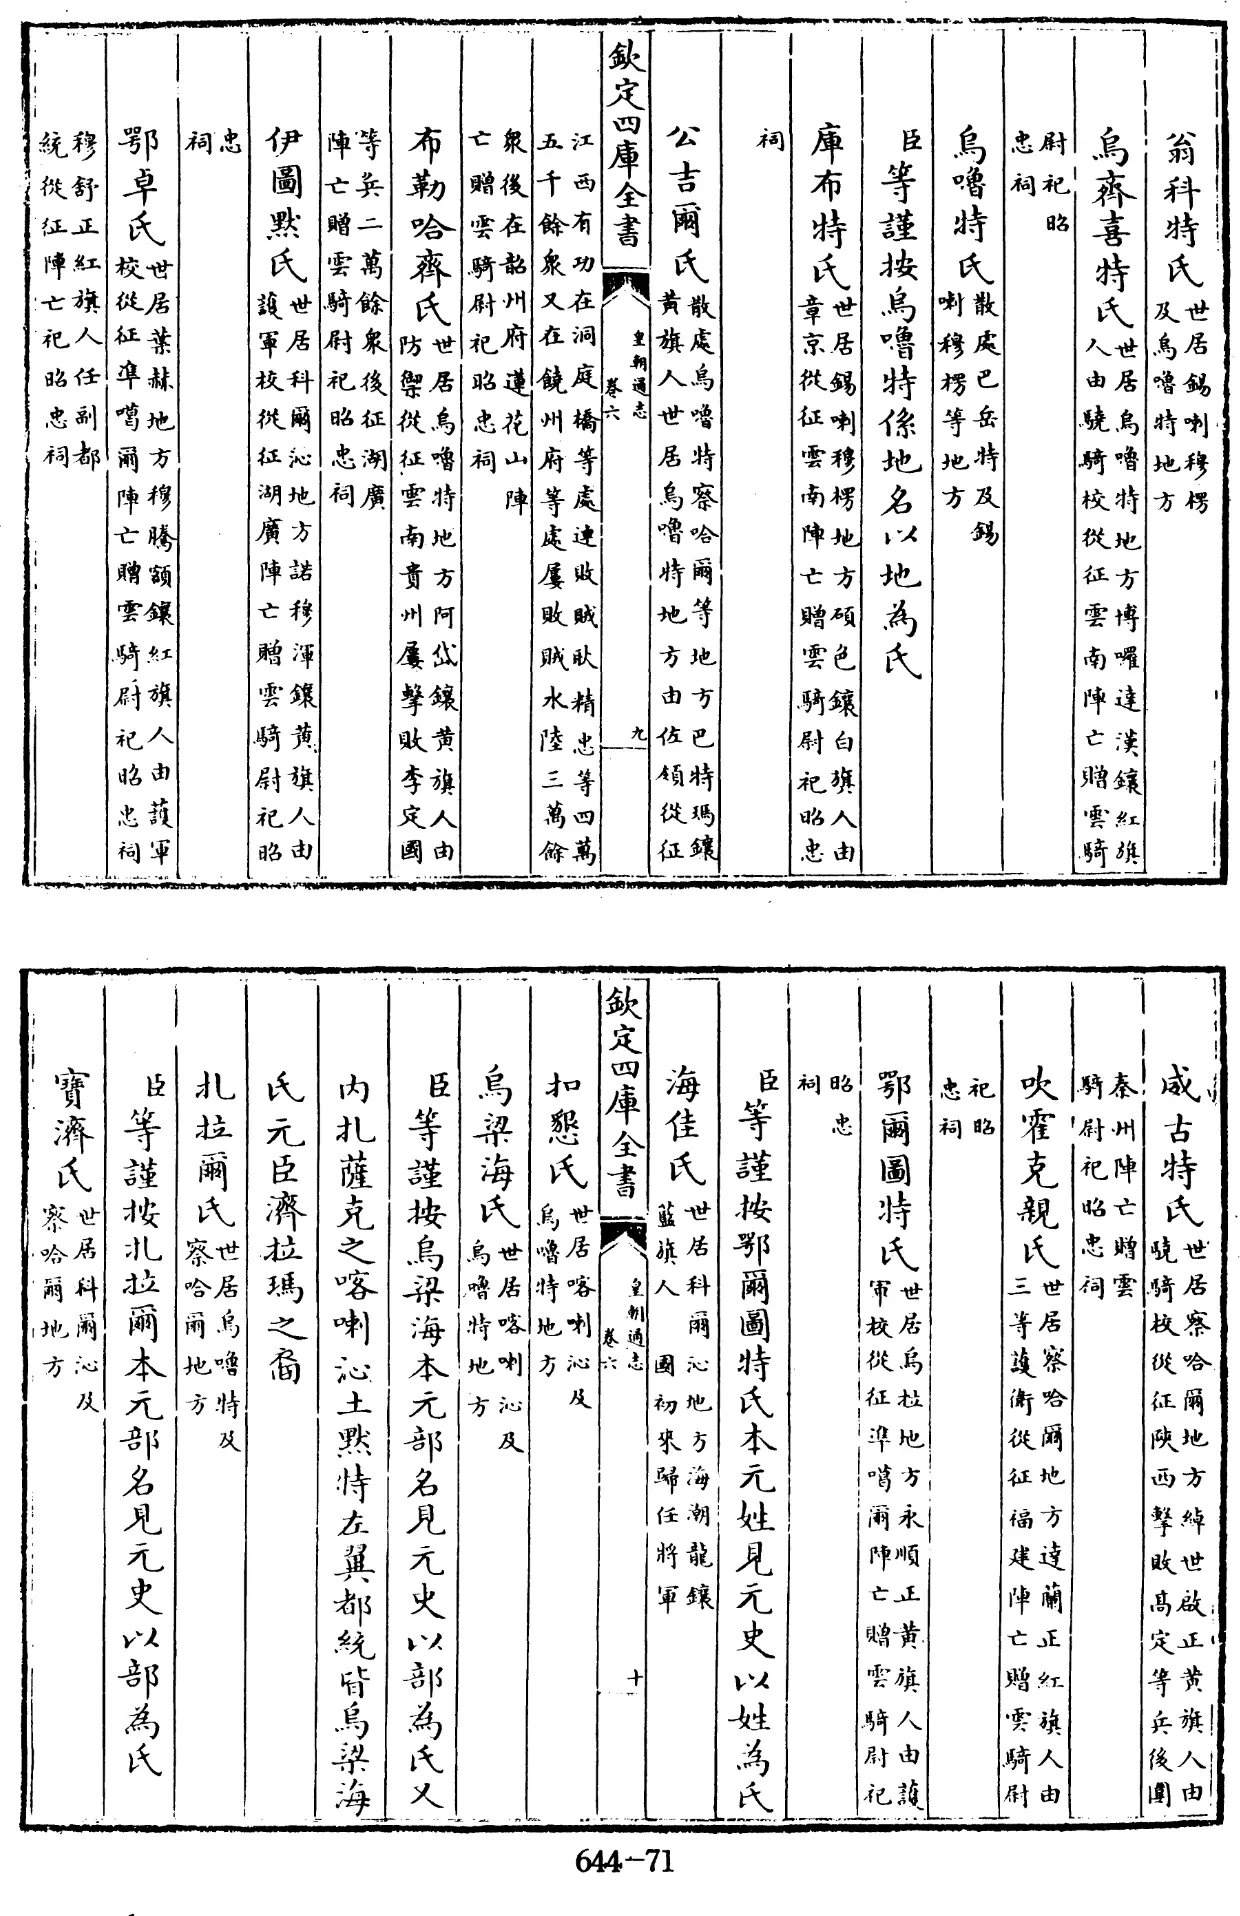 翁科特氏世居錫喇穆楞及烏嚕特地方
烏齊喜特氏世居烏嚕特地方博囉達漢鑲紅旗人由驍騎校從征雲南陣亡贈雲騎
尉祀昭忠祠
烏嚕特氏散處巴岳特及錫喇穆楞等地方
臣等謹按烏嚕特係地名以地為氏
庫布特氏世居錫喇穆楞地方碩色鑲白旗人由章京從征雲南陣亡贈雲騎尉祀昭忠
祠
公吉爾氏散處烏嚕特察哈爾等地方巴特瑪鑲黃旗人世居烏嚕特地方由佐領從征
欽定四庫全書 皇朝通志 卷六 九
江西有功在洞庭橋等處連敗賊耿精忠等四萬五千餘衆又在饒州府等處屢敗賊水陸三萬餘
衆後在韶州府蓮花山陣亡贈雲騎尉祀昭忠祠
布勒哈齊氏世居烏嚕特地方阿岱鑲黃旗人由防禦從征雲南貴州屢擊敗李定國
等兵二萬餘衆後征湖廣陣亡贈雲騎尉祀昭忠祠
伊圖默氏世居科爾沁地方諾穆渾鑲黃旗人由護軍校從征湖廣陣亡贈雲騎尉祀昭
忠祠
鄂卓氏世居葉赫地方穆騰額鑲紅旗人由護軍校從征準噶爾陣亡贈雲騎尉祀昭忠祠
穆舒正紅旗人任副都統從征陣亡祀昭忠祠
威古特氏世居察哈爾地方綽世啟正黃旗人由驍騎校從征陝西擊敗高定等兵後圍
秦州陣亡贈雲騎尉祀昭忠祠
吹霍克親氏世居察哈爾地方達蘭正紅旗人由三等護衛從征福建陣亡贈雲騎尉
祀昭忠祠
鄂爾圖特氏世居烏拉地方永順正黃旗人由護軍校從征準噶爾陣亡贈雲騎尉祀
昭忠祠
臣等謹按鄂爾圖特氏本元姓見元史以姓為氏
海佳氏世居科爾沁地方海潮龍鑲藍旗人 國初來歸任將軍
欽定四庫全書 皇朝通志 卷六 十
扣懇氏世居喀喇沁及烏嚕特地方
烏梁海氏世居喀喇沁及烏嚕特地方
臣等謹按烏梁海本元部名見元史以部為氏又
内扎薩克之喀喇沁土默特左翼都統皆烏梁海
氏元臣濟拉瑪之裔
扎拉爾氏世居烏嚕特及察哈爾地方
臣等謹按扎拉爾本元部名見元史以部為氏
寶濟氏世居科爾沁及察哈爾地方
644-71